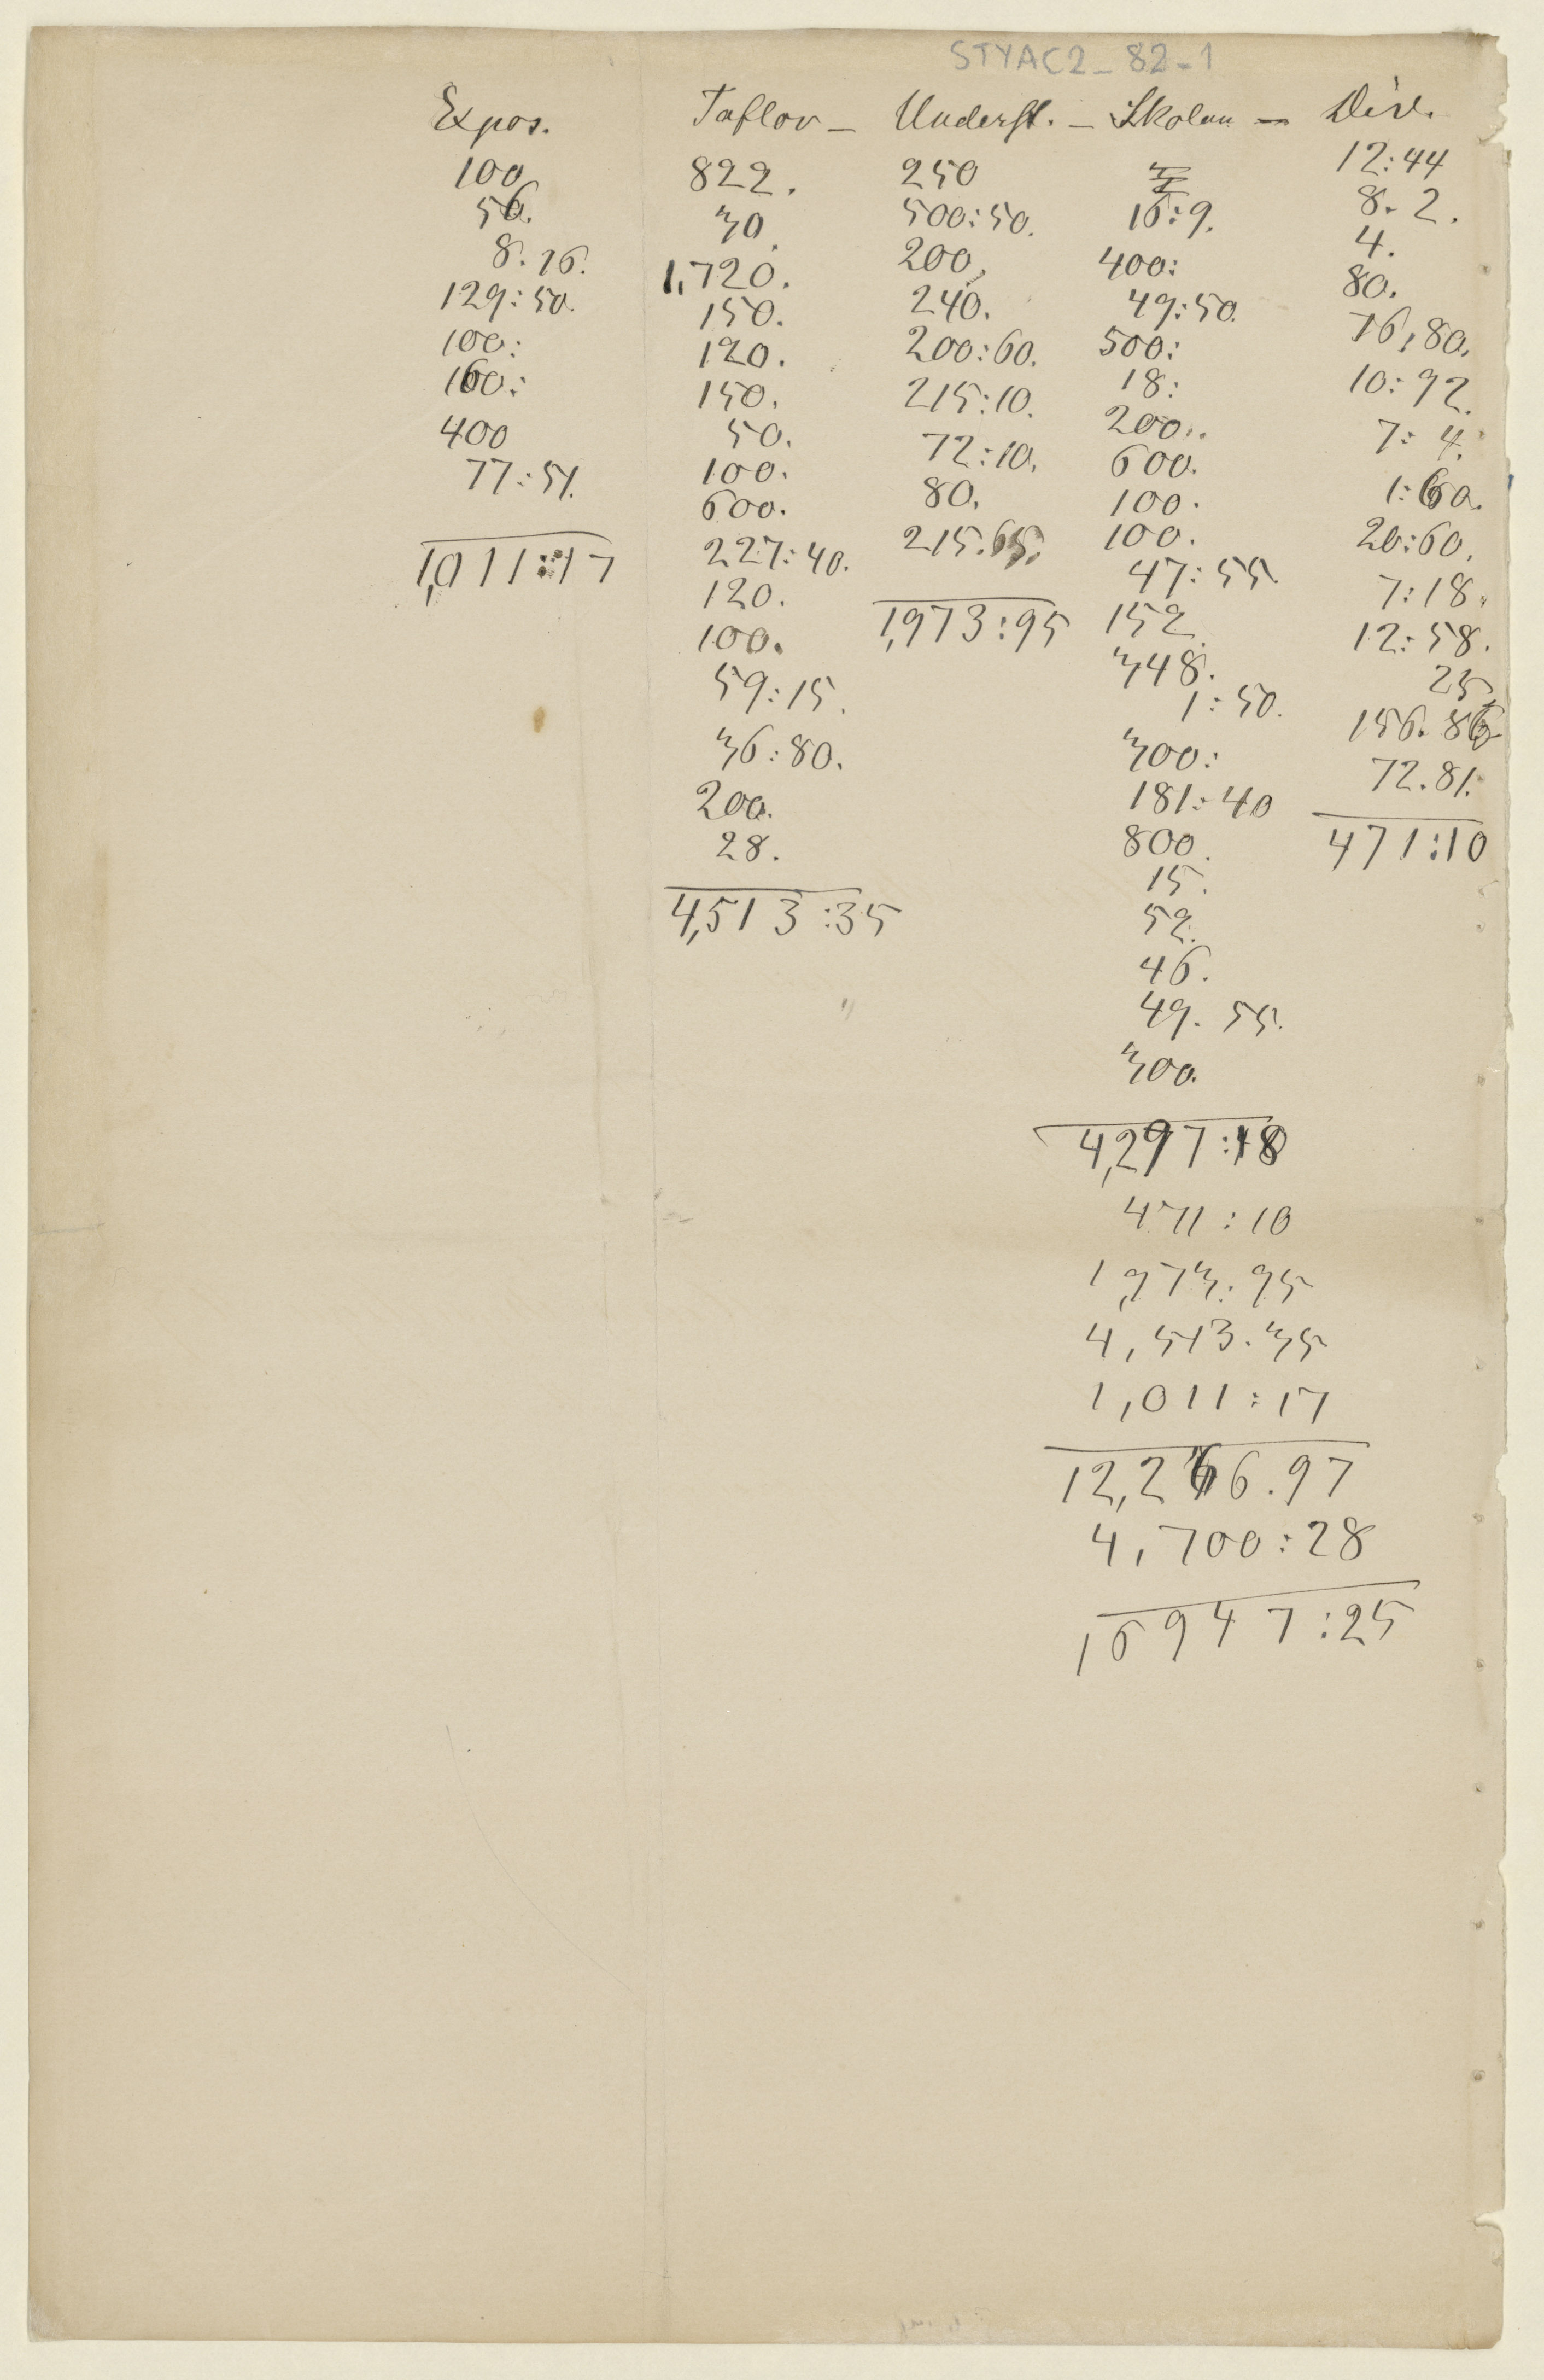 STYAC2_82-1
Expos. Taflor – Underst. – Skolan – Div.
100
56.
8.16.
129:50.
100:
160:
400
77:51.
1,011:17
822.
30.
1,720.
150.
120.
150.
50.
100.
600.
227:40.
120.
100.
59:15.
36:80.
200.
28.
4,513:35
250
500:50.
200.
240.
200:60.
215:10.
72:10.
80.
215.65.
1,973:95
16:9.
400:
49:50.
500:
18:
200.
600.
100.
100.
47:55.
152.
348.
1:50.
300:
181:40
800.
15.
52.
46.
49.55.
300.
4,297:18
471:10
1,973:95
4,513.35
1,011:17
12,266.97
4,700:28
16947:25
12:44
8.2.
4.
80.
76,80.
10:92.
7:4.
1:60.
20:60.
7:18.
12:58.
25.
156.86
72.81.
471:10